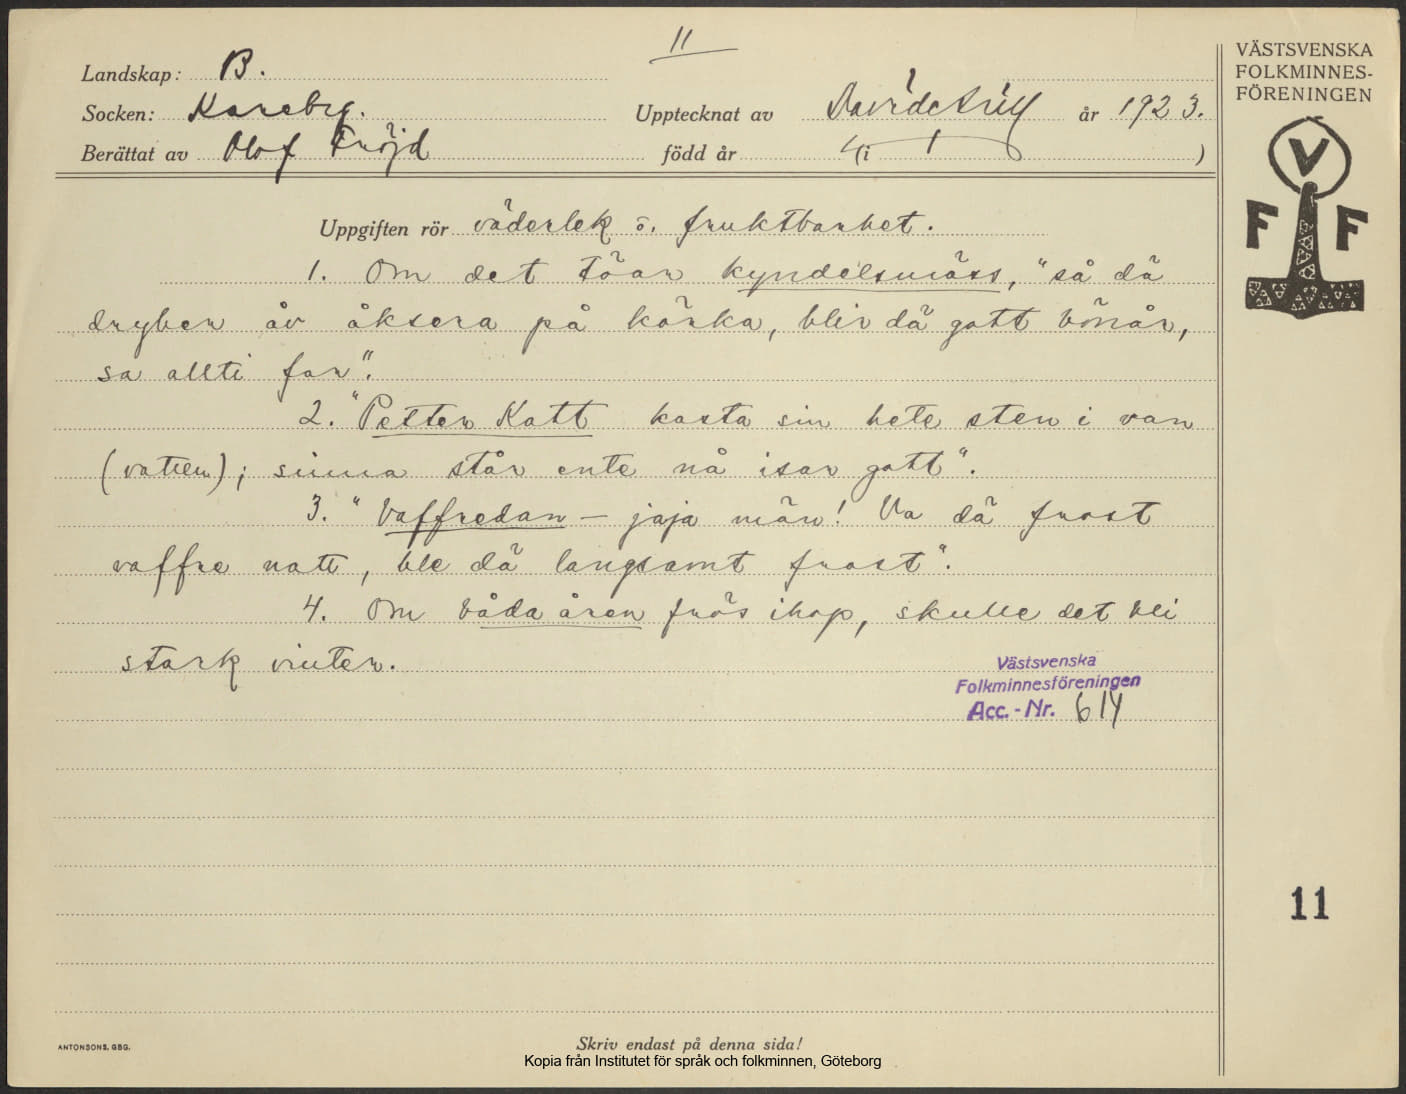 11
Landskap: B.
Socken: Kareby.
Berättat av Olof Fröjd
Upptecknat av David Arill år 1923.
född år (i )
VÄSTSVENSKA
FOLKMINNES-
FÖRENINGEN
V
F F
Uppgiften rör väderlek o. fruktbarhet.
1. Om det töar kyndelsmäss, "så dä
dryber åv åksera på körka, blir dä gott bönår,
sa allti far".
2. "Petter Katt kasta sin hete sten i van
(vatten); sinna står ente nå isar gott".
3. "Vaffredan – jaja män! Va dä frost
vaffre natt, ble dä langsamt frost".
4. Om båda åren frös ihop, skulle det bli
stark vinter.
Västsvenska
Folkminnesföreningen
Acc.-Nr. 614
11
ANTONSONS, GBG.
Skriv endast på denna sida!
Kopia från Institutet för språk och folkminnen, Göteborg